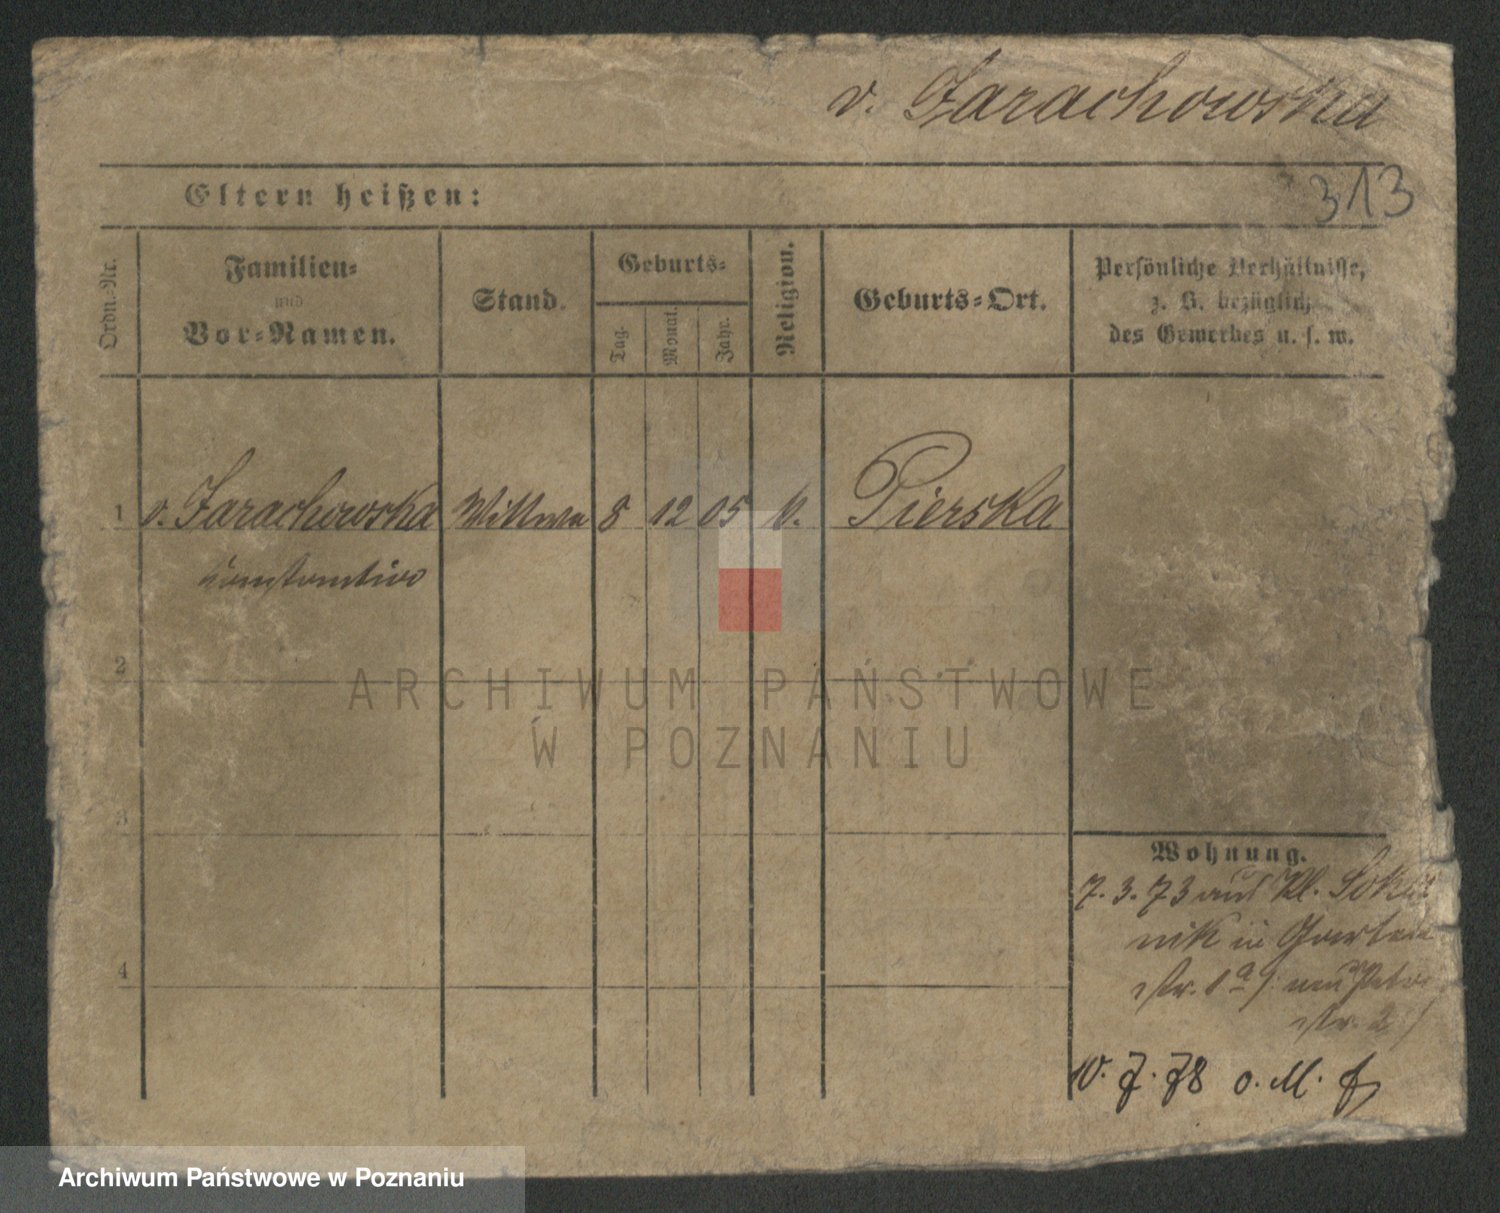 v. Zarachowska
313
Eltern heißen:
Ordn.-Nr.
Familien-
und
Vor-Namen.
Stand.
Geburts-
Tag.
Monat.
Jahr.
Religion.
Geburts-Ort.
Persönliche Verhältnisse,
z. B. bezüglich
des Gewerbes u. s. w.
1 v. Zarachowska Wittwe 8 12 05 k. Pierska
2
3
4
Wohnung.
7. 3. 73 aus Kl. Sokol
nik in Garten
str. 1a neu Petri
str. 2
10. 7. 78 o. M.
ARCHIWUM PAŃSTWOWE
W POZNANIU
Archiwum Państwowe w Poznaniu